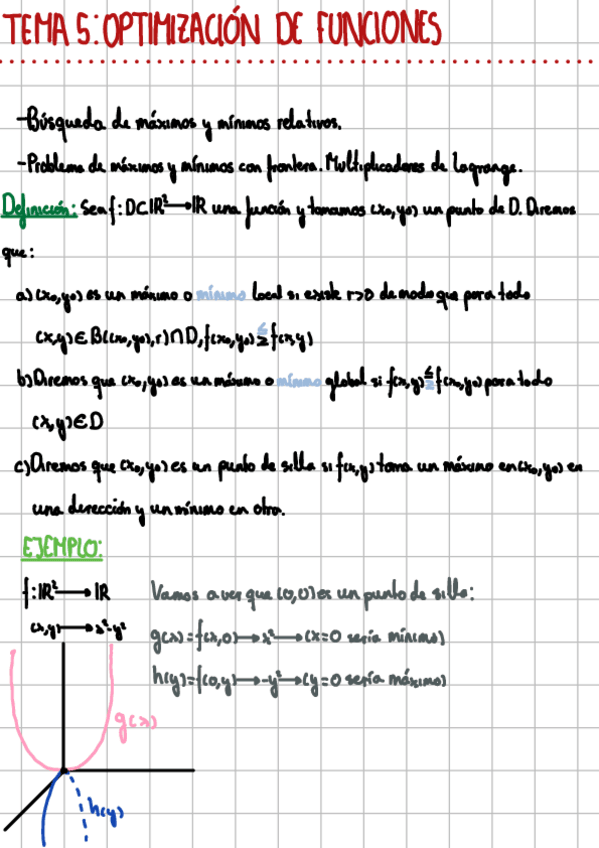 TEMA 5: OPTIMIZACIÓN DE FUNCIONES
-Búsqueda de máximos y mínimos relativos.
-Problema de máximos y mínimos con frontera. Multiplicadores de Lagrange.
Definición: Sea f: D⊂ℝ²→ℝ una función y tomamos (x₀,y₀) un punto de D. Diremos
que:
a) (x₀,y₀) es un máximo o mínimo local si existe r>0 de modo que para todo
(x,y)∈B((x₀,y₀),r)∩D, f(x₀,y₀) ≤ ≥ f(x,y)
b) Diremos que (x₀,y₀) es un máximo o mínimo global si f(x,y) ≤ ≥ f(x₀,y₀) para todo
(x,y)∈D
c) Diremos que (x₀,y₀) es un punto de silla si f(x,y) toma un máximo en (x₀,y₀) en
una dirección y un mínimo en otra.
EJEMPLO:
f: ℝ²→ℝ
(x,y)→x²-y²
Vamos a ver que (0,0) es un punto de silla:
g(x)=f(x,0)→x²→(x=0 sería mínimo)
h(y)=f(0,y)→-y²→(y=0 sería máximo)
g(x)
h(y)